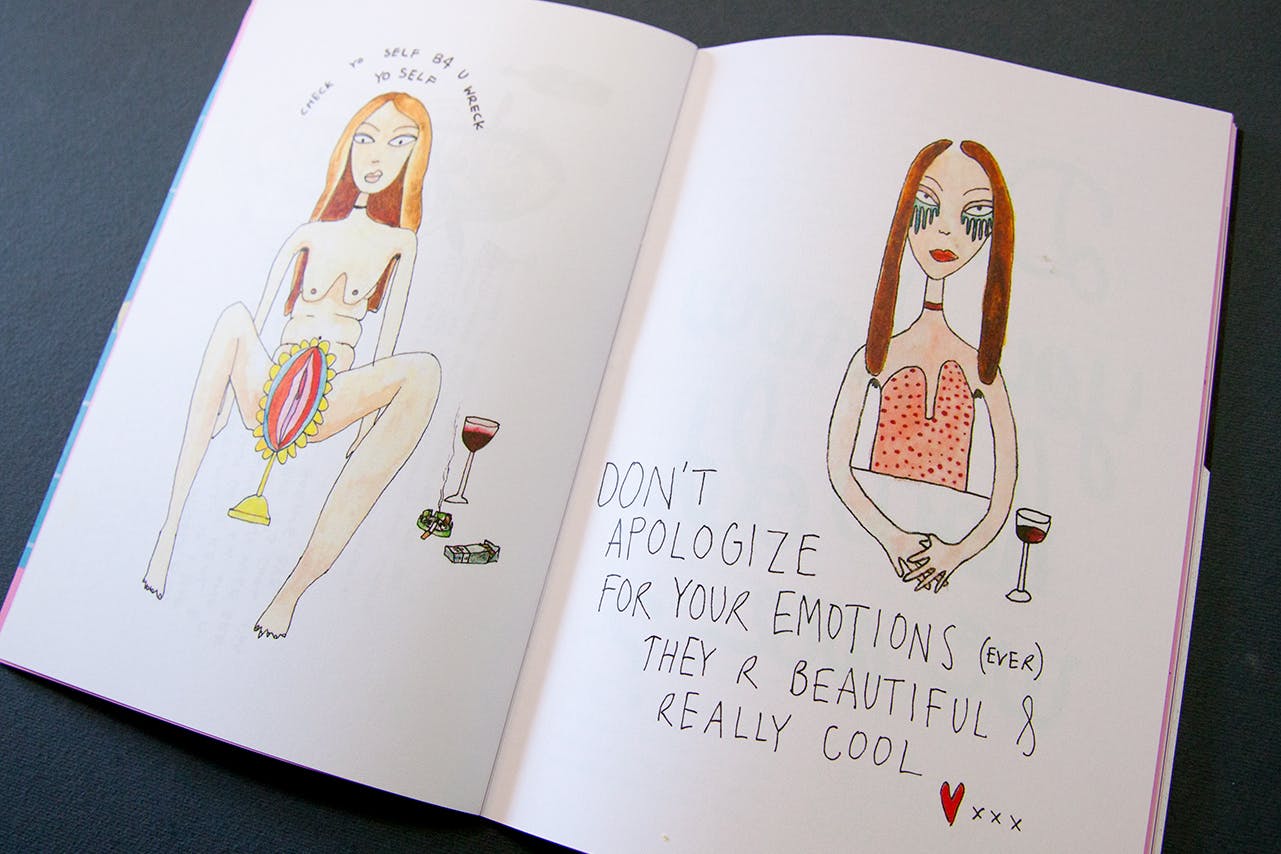 CHECK YO SELF B4 U WRECK
YO SELF
DON'T
APOLOGIZE
FOR YOUR EMOTIONS (EVER)
THEY R BEAUTIFUL &
REALLY COOL
xxx